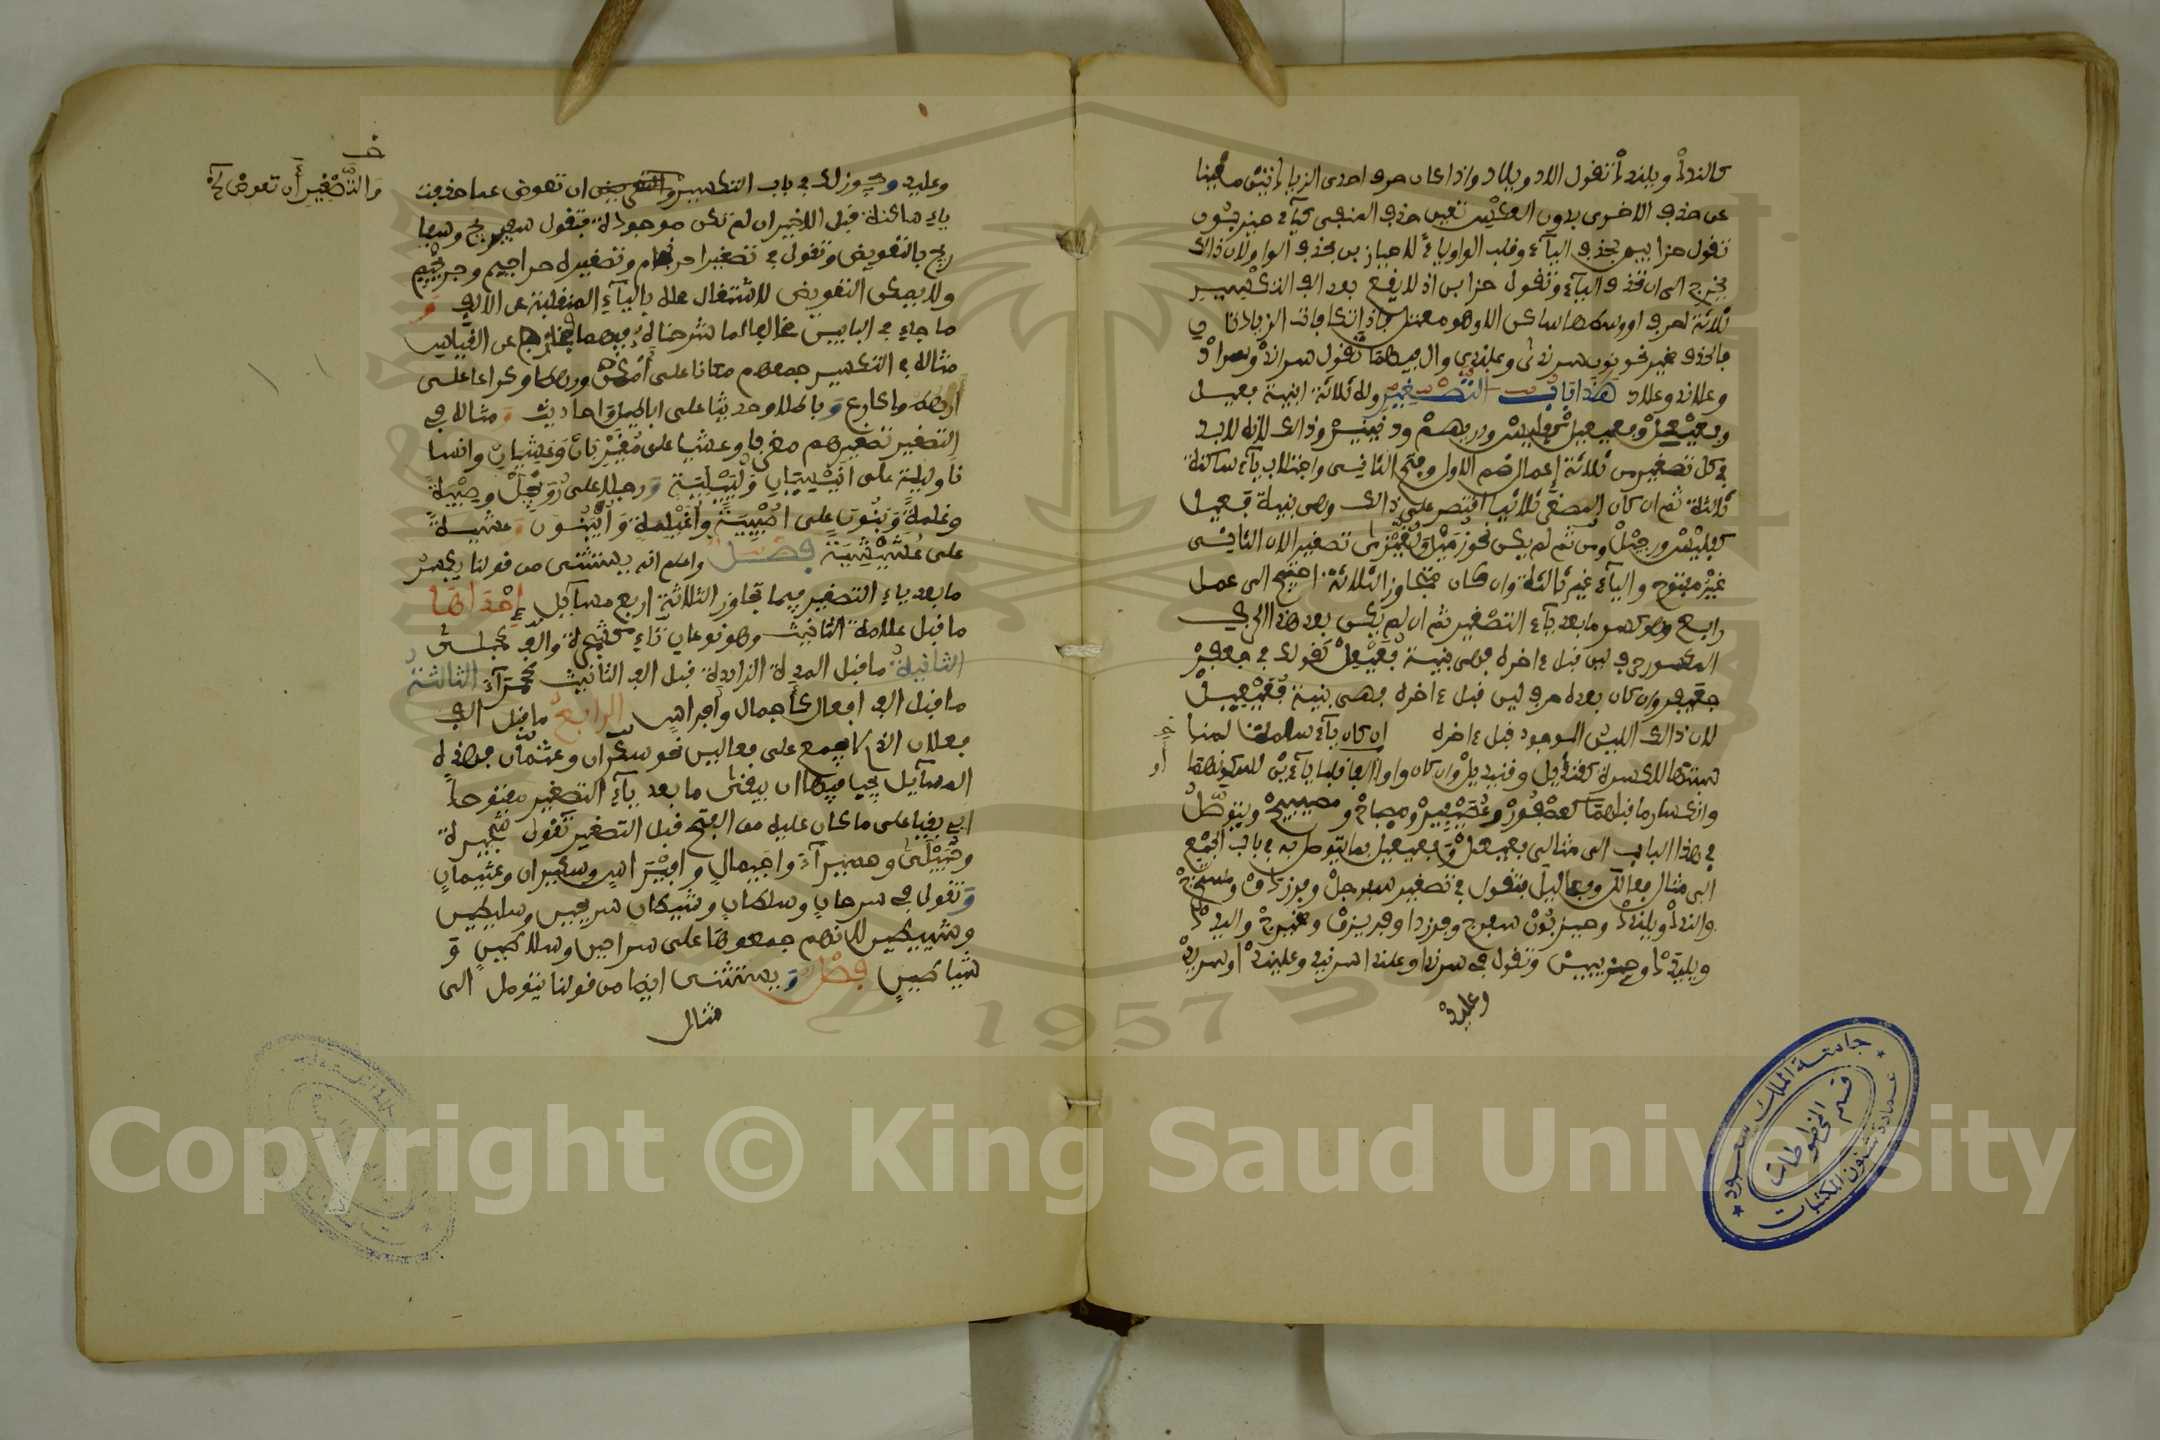 كالندد ويلندد تقول الاد ويلاد واذا كان حرف احدى الزيادتين مغنيا
عن حذف الاخرى بدون العكس تعين حذف المغنى كياء حيزبون
تقول حزابين بحذف الياء وقلب الواو ياء لا حيازبن بحذف الواو لان ذلك
يحوج الى ان تحذف الياء وتقول حزابن اذ لا يقع بعد الف التكسير
ثلاثة احرف اووسطها ساكن الا وهو معتل فان تكافات الزيادتان
فالحذف مخير نحو نون سرندى وعلندى والفيهما تقول سراند وسراد
وعلاند وعلاد هذا باب التصغير وله ثلاثة ابنية فعيل
وفعيعل وفعيعيل كفليس ودريهم ودنينير وذلك لانه لابد
في كل تصغير من ثلاثة اعمال ضم الاول وفتح الثاني واجتلاب ياء ساكنة
ثالثة ثم ان كان المصغر ثلاثيا اقتصر على ذلك وهي بنية فعيل
كفليس ورجيل ومن ثم لم يكن نحو زميل ولغيزى تصغيرا لان الثاني
غير مفتوح والياء غير ثالثة وان كان متجاوزا الثلاثة احتيج الى عمل
رابع وهو كسر ما بعد ياء التصغير ثم ان لم يكن بعد هذا الحرف
المكسور حرف لين قبل ءاخره فهي بنية فعيعل كقولك في جعفر
جعيفر وان كان بعده حرف لين قبل ءاخره فهي بنية فعيعيل
لان ذلك اللين الموجود قبل ءاخره ان كان ياء سلمت لمناسبتها
للكسرة كقنديل وقنيديل وان كان واوا او الفا قلبا ياءين لسكونهما
وانكسار ما قبلهما كعصفور وعصيفير ومصباح ومصيبيح ويتوصل
في هذا الباب الى مثالي فعيعل وفعيعيل بما يتوصل به في باب الجمع
الى مثال فعالل وفعاليل فتقول في تصغير سفرجل وفرزدق ومستخرج
والندد ويلندد وحيزبون سفيرج وفريزد او فريزق ومخيرج واليد
ويليد وحزيبين وتقول في سرندى وعلندى سريند وعليند او سريد
وعليد
خ
او
وعليد ويجوز لك في باب التكسير والتصغير ان تعوض عما حذفت
خ
والتصغير أن تعوض
ياء ساكنة قبل الاخير ان لم تكن موجودة فتقول سفيريج وسفا
ريج بالتعويض وتقول في تصغير احرنجام وتكسيره حراجيم وحريجيم
ولا يمكن التعويض لاشتغال محله بالياء المنقلبة عن الالف و
ما جاء في البابين مخالفا لما شرحناه فيهما فخارج عن القياس
مثاله في التكسير جمعهم مكانا على أمكن ورهطا وكراعا على
اراهط واكارع وباطلا وحديثا على اباطيل واحاديث ومثاله في
التصغير تصغيرهم مغربا وعشيا على مغيربان وعشيان وانسا
نا وليلة على انيسيان ولييلية ورجلا على رويجل وصبية
وغلمة وبنون على اصيبية واغيلمة وأبينون وعشية
على عشيشية فصل واعلم انه يستثنى من قولنا يكسر
ما بعد ياء التصغير فيما تجاوز الثلاثة اربع مسائل إحداها
ما قبل علامة التانيث وهو نوعان تاء كشجرة والف كحبلى
الثانية ما قبل المدة الزايدة قبل الف التانيث كحمراء الثالثة
ما قبل الف افعال كأجمال وأفراس الرابعة ما قبل الف
فعلان الذي لا يجمع على فعالين نحو سكران وعثمان فهذه
المسائل يجب فيها ان يبقى ما بعد ياء التصغير مفتوحا
اي يبقيا على ما كان عليه من الفتح قبل التصغير تقول شجيرة
وحبيلى وحميراء واجيمال وافيراس وسكيران وعثيمان
وتقول في سرحان وسلطان وشيطان سريحين وسليطين
وشييطين لانهم جمعوها على سراحين وسلاطين و
شياطين فصل ويستثنى ايضا من قولنا يتوصل الى
مثال
جامعة الملك سعود
عمادة شئون المكتبات
قسم المخطوطات
1957
Copyright © King Saud University